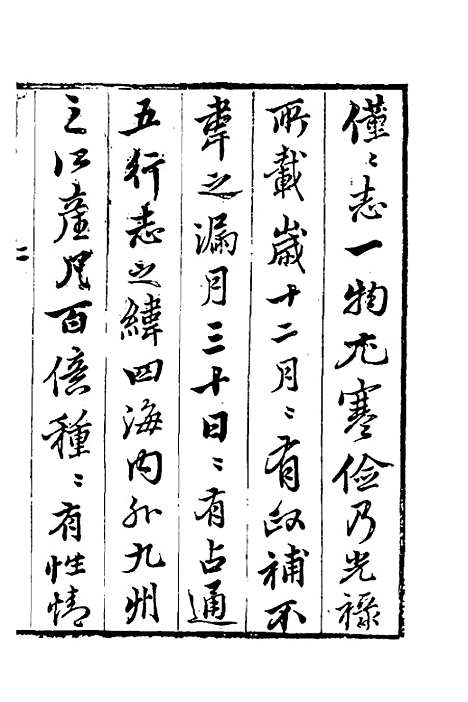 僅〻志一物尤寒儉乃光祿
所載歲十二月〻有政補不
韋之漏月三十日〻有占通
五行志之緯四海內外九州
之江產凡百億種〻有性情
二